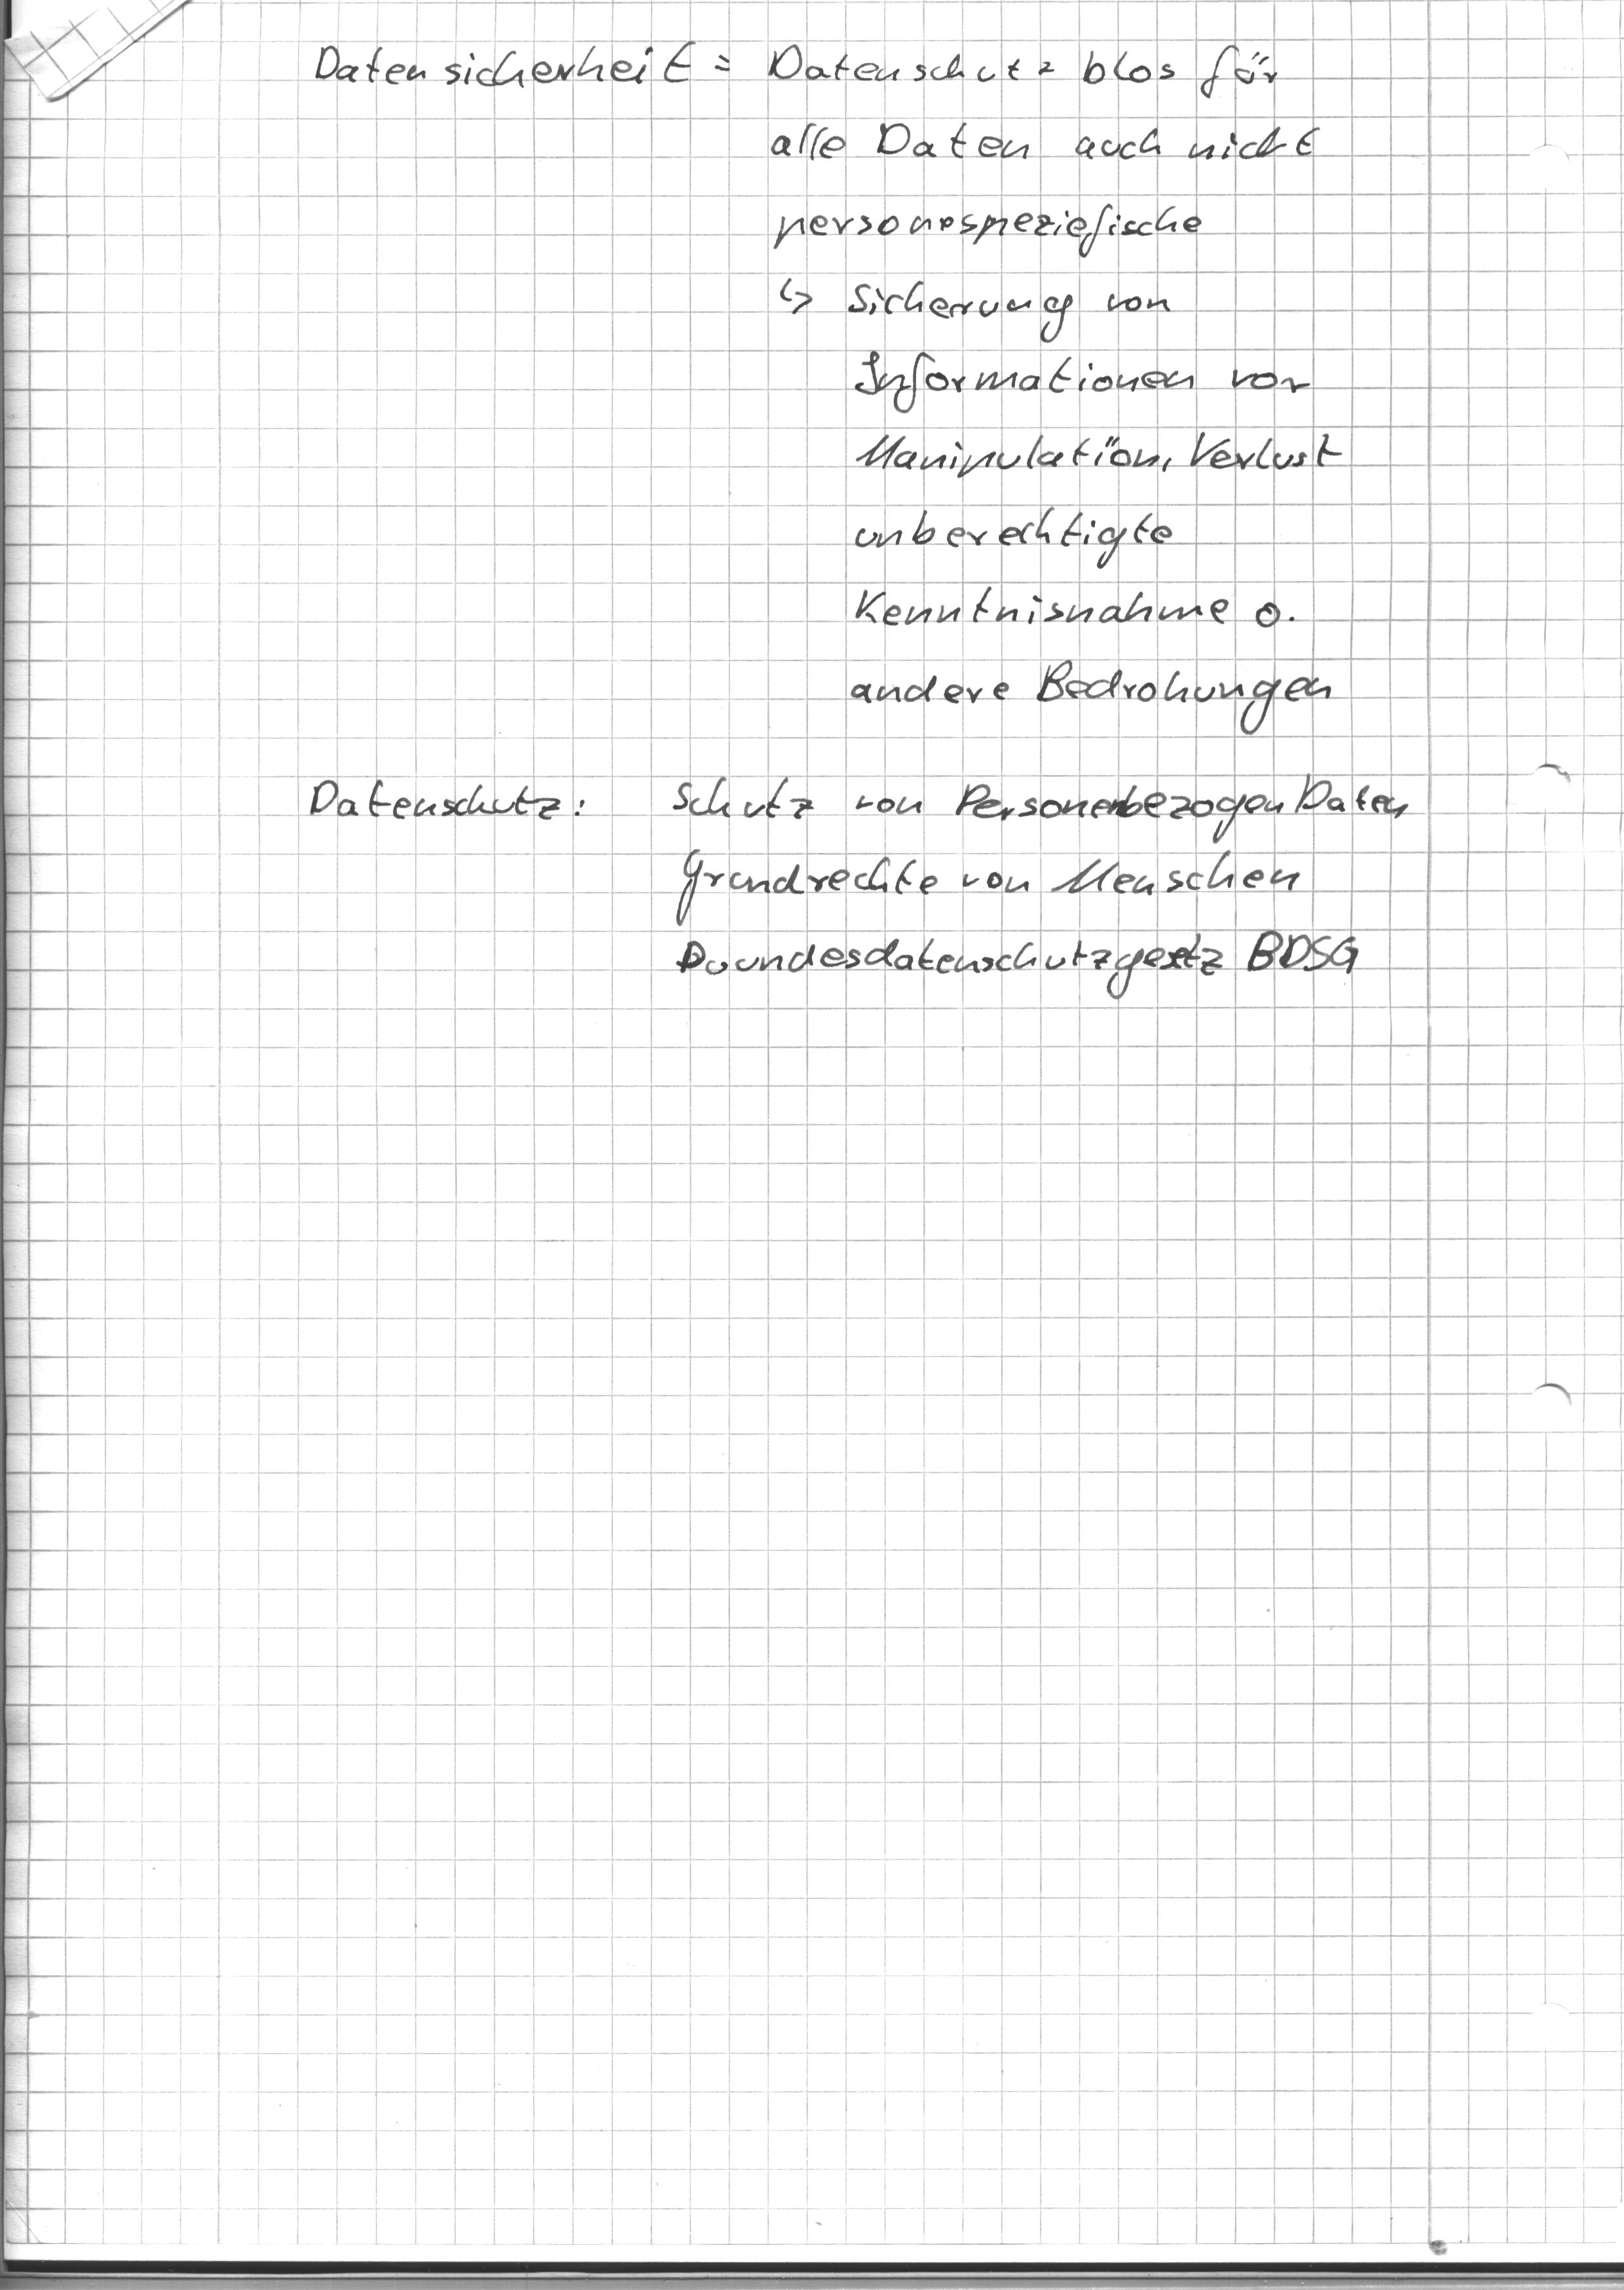 Datensicherheit = Datenschutz blos für
alle Daten auch nicht
personespeziefische
↳ Sicherung von
Informationen vor
Manipulation, Verlust
unberechtigte
Kenntnisnahme o.
andere Bedrohungen
Datenschutz: Schutz von Personenbezogen Daten
Grundrechte von Menschen
Boundesdatenschutzgesetz BDSG